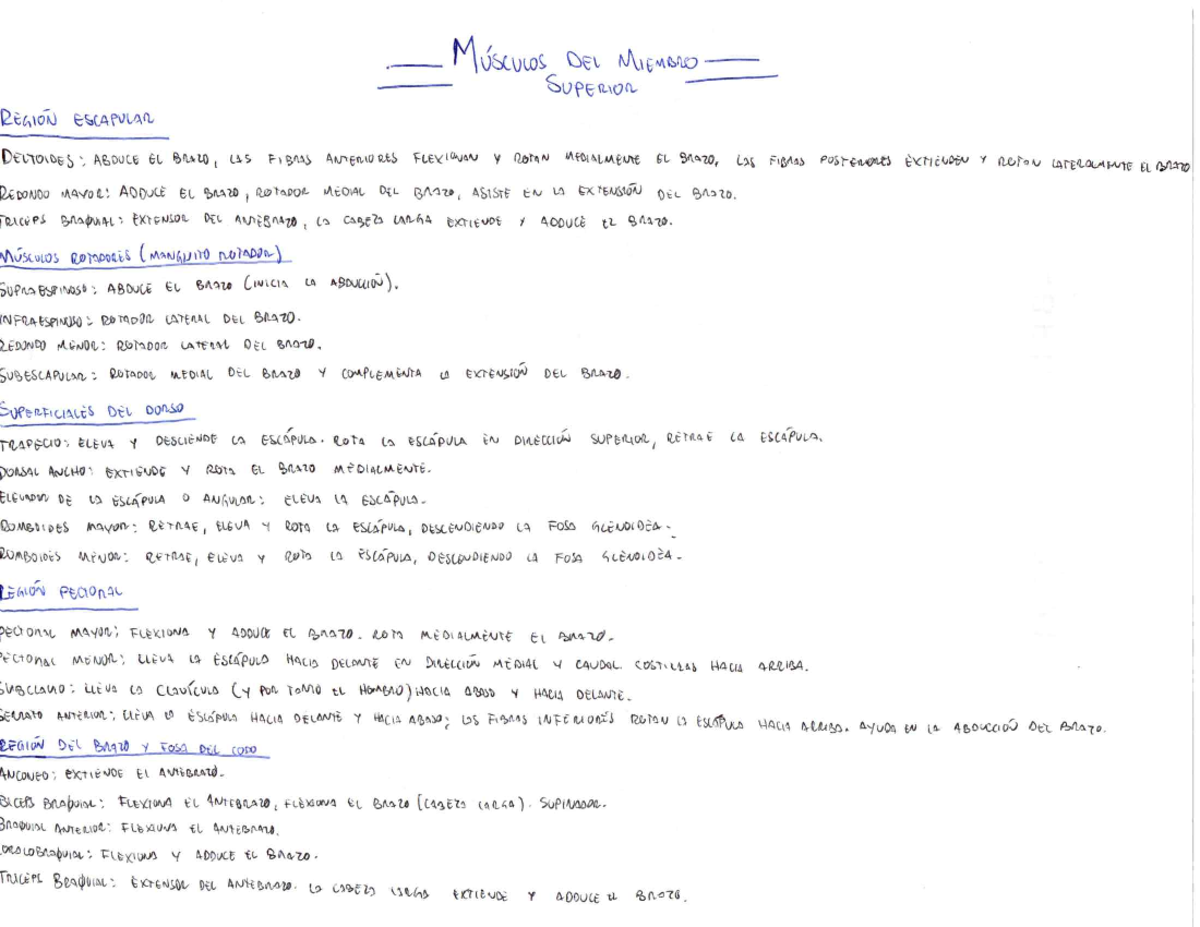 MÚSCULOS DEL MIEMBRO
SUPERIOR
REGIÓN ESCAPULAR
DELTOIDES: ABDUCE EL BRAZO, LAS FIBRAS ANTERIORES FLEXIONAN Y ROTAN MEDIALMENTE EL BRAZO, LAS FIBRAS POSTERIORES EXTIENDEN Y ROTAN LATERALMENTE EL BRAZO
REDONDO MAYOR: ADDUCE EL BRAZO, ROTADOR MEDIAL DEL BRAZO, ASISTE EN LA EXTENSIÓN DEL BRAZO.
TRICEPS BRAQUIAL: EXTENSOR DEL ANTEBRAZO, LA CABEZA LARGA EXTIENDE Y ADDUCE EL BRAZO.
MÚSCULOS ROTADORES (MANGUITO ROTADOR)
SUPRAESPINOSO: ABDUCE EL BRAZO (INICIA LA ABDUCCIÓN).
INFRAESPINOSO: ROTADOR LATERAL DEL BRAZO.
REDONDO MENOR: ROTADOR LATERAL DEL BRAZO.
SUBESCAPULAR: ROTADOR MEDIAL DEL BRAZO Y COMPLEMENTA LA EXTENSIÓN DEL BRAZO.
SUPERFICIALES DEL DORSO
TRAPECIO: ELEVA Y DESCIENDE LA ESCÁPULA. ROTA LA ESCÁPULA EN DIRECCIÓN SUPERIOR, RETRAE LA ESCÁPULA.
DORSAL ANCHO: EXTIENDE Y ROTA EL BRAZO MEDIALMENTE.
ELEVADOR DE LA ESCÁPULA O ANGULAR: ELEVA LA ESCÁPULA.
ROMBOIDES MAYOR: RETRAE, ELEVA Y ROTA LA ESCÁPULA, DESCENDIENDO LA FOSA GLENOIDEA.
ROMBOIDES MENOR: RETRAE, ELEVA Y ROTA LA ESCÁPULA, DESCENDIENDO LA FOSA GLENOIDEA.
REGIÓN PECTORAL
PECTORAL MAYOR: FLEXIONA Y ADDUCE EL BRAZO. ROTA MEDIALMENTE EL BRAZO.
PECTORAL MENOR: LLEVA LA ESCÁPULA HACIA DELANTE EN DIRECCIÓN MEDIAL Y CAUDAL. COSTILLAS HACIA ARRIBA.
SUBCLAVIO: LLEVA LA CLAVÍCULA (Y POR TANTO EL HOMBRO) HACIA ABAJO Y HACIA DELANTE.
SERRATO ANTERIOR: LLEVA LA ESCÁPULA HACIA DELANTE Y HACIA ABAJO; LAS FIBRAS INFERIORES ROTAN LA ESCÁPULA HACIA ARRIBA. AYUDA EN LA ABDUCCIÓN DEL BRAZO.
REGIÓN DEL BRAZO Y FOSA DEL CODO
ANCONEO: EXTIENDE EL ANTEBRAZO.
BICEPS BRAQUIAL: FLEXIONA EL ANTEBRAZO, FLEXIONA EL BRAZO (CABEZA LARGA). SUPINADOR.
BRAQUIAL ANTERIOR: FLEXIONA EL ANTEBRAZO.
CORACOBRAQUIAL: FLEXIONA Y ADDUCE EL BRAZO.
TRICEPS BRAQUIAL: EXTENSOR DEL ANTEBRAZO. LA CABEZA LARGA EXTIENDE Y ADDUCE EL BRAZO.